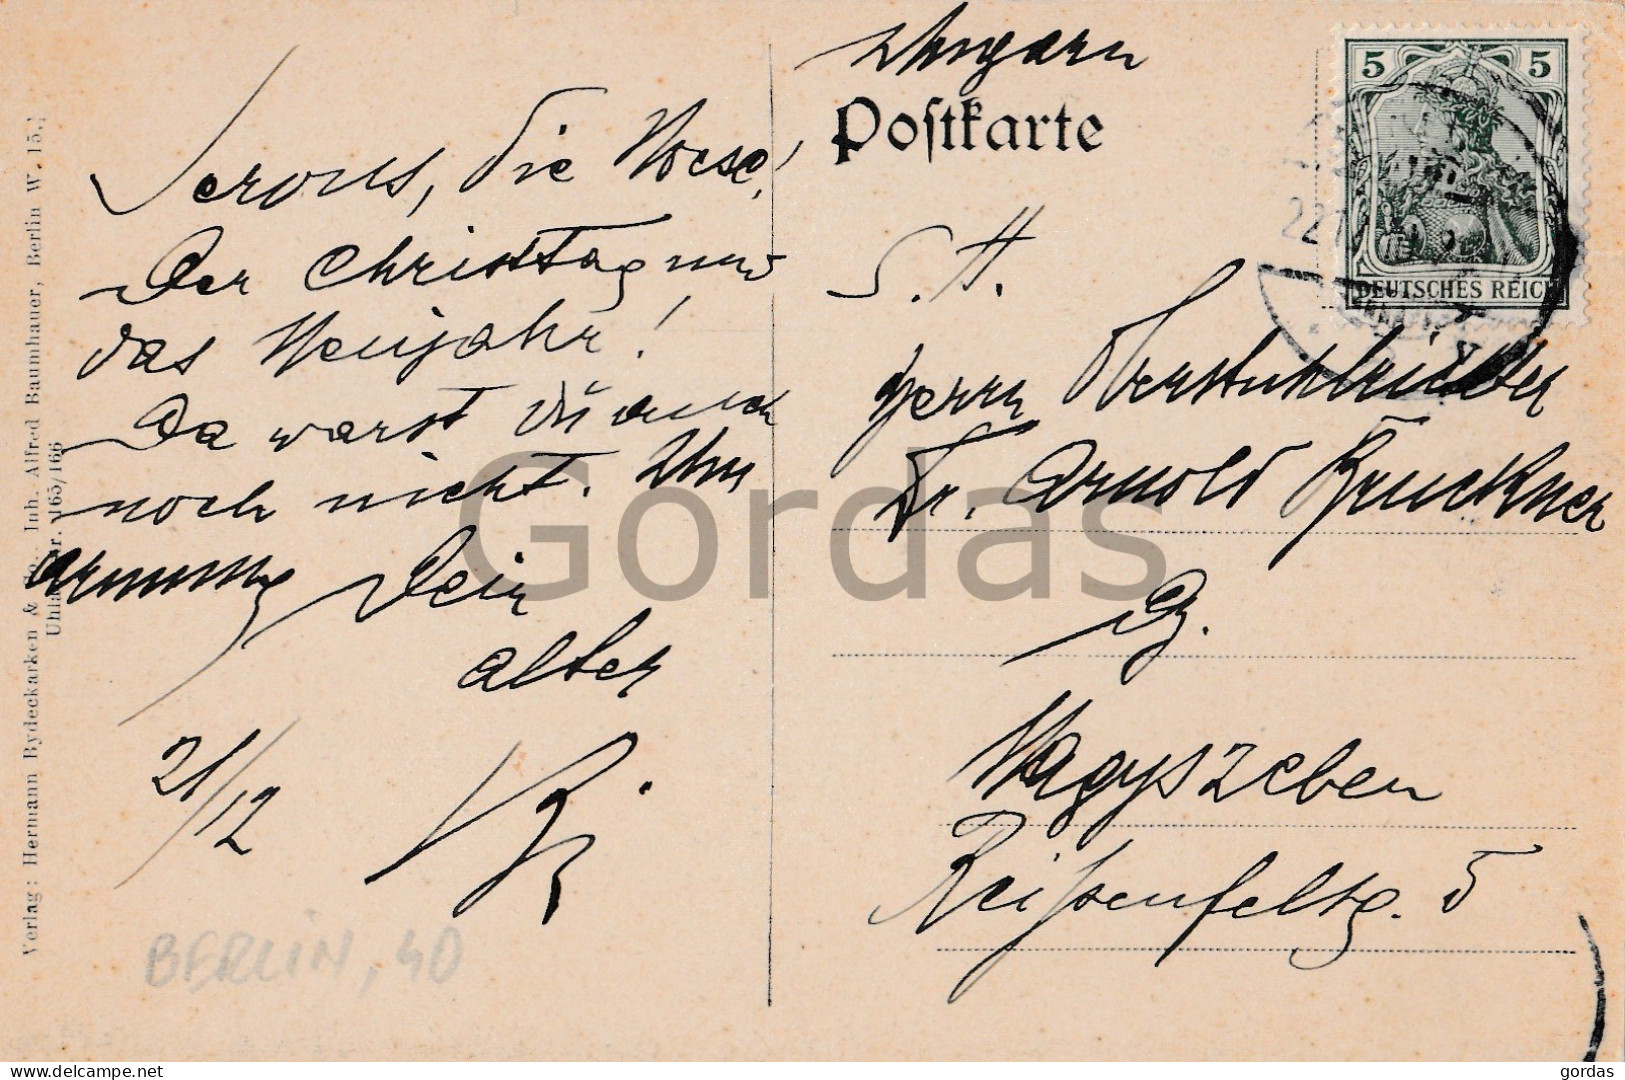 Ungarn
Postkarte
5 5
DEUTSCHES REICH
Servus, die Roese!
Der Christtag und
das Neujahr!
Da warst Du auch
noch nicht. Um
armung Dein
alter
21/12
S. H.
Herrn Oberstuhlrichter
Dr. Arnold Bruckner
Nagyszeben
Reißenfelsg. 5
Verlag: Hermann Bydeckarken & Co., Inh. Alfred Baumhauer, Berlin W. 15.;
165/166
BERLIN, 40
Gordas
www.delcampe.net
gordas